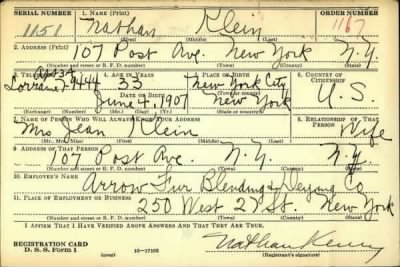 SERIAL NUMBER 1. NAME (Print) ORDER NUMBER
1151 Nathan Klein 1167
(First) (Middle) (Last)
2. ADDRESS (Print)
107 Post Ave. New York N.Y.
(Number and street or R. F. D. number) (Town) (County) (State)
3. TELEPHONE 4. AGE IN YEARS 5. PLACE OF BIRTH 6. COUNTRY OF CITIZENSHIP
Lorraine 7-9444 33 New York City
DATE OF BIRTH
June 4, 1907 New York U.S.
(Exchange) (Number) (Mo.) (Day) (Yr.) (State or country)
7. NAME OF PERSON WHO WILL ALWAYS KNOW YOUR ADDRESS 8. RELATIONSHIP OF THAT PERSON
Mrs Jean Klein Wife
(Mr., Mrs., Miss) (First) (Middle) (Last)
9. ADDRESS OF THAT PERSON
107 Post Ave. N.Y. N.Y.
(Number and street or R. F. D. number) (Town) (County) (State)
10. EMPLOYER'S NAME
Arrow Fur Blending & Dyeing Co
11. PLACE OF EMPLOYMENT OR BUSINESS
250 West 27 St. New York
(Number and street or R. F. D. number) (Town) (County) (State)
I AFFIRM THAT I HAVE VERIFIED ABOVE ANSWERS AND THAT THEY ARE TRUE.
REGISTRATION CARD
D. S. S. Form 1 16-17105 Nathan
(Registrant's signature)